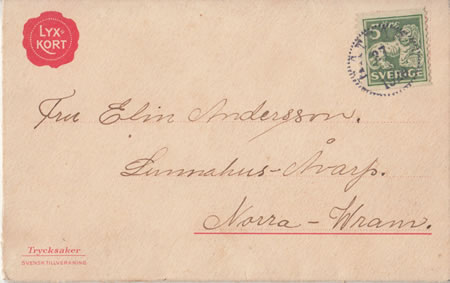 LYX-
KORT
5
SVERIGE
27
Fru Elin Andersson.
Lunnahus-Åvarp.
Norra-Wram.
Trycksaker
SVENSK TILLVERKNING.